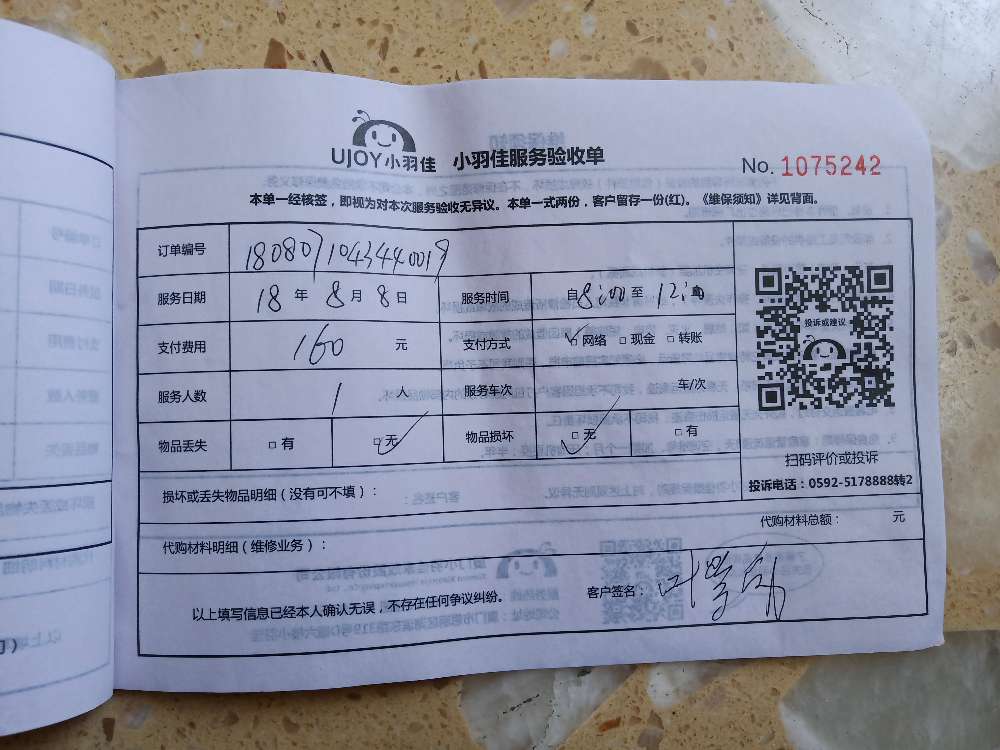 UJOY小羽佳 小羽佳服务验收单
No. 1075242
本单一经核签，即视为对本次服务验收无异议。本单一式两份，客户留存一份(红)。《维保须知》详见背面。
订单编号 180807104344001
服务日期 18 年 8 月 8 日 服务时间 自 8:00 至 12:00
支付费用 160 元 支付方式 ☑网络 □现金 □转账
服务人数 1 人 服务车次 车/次
物品丢失 □有 ☑无 物品损坏 ☑无 □有
投诉或建议
扫码评价或投诉
投诉电话：0592-5178888转2
损坏或丢失物品明细（没有可不填）：
代购材料明细（维修业务）： 代购材料总额： 元
以上填写信息已经本人确认无误，不存在任何争议纠纷。 客户签名：